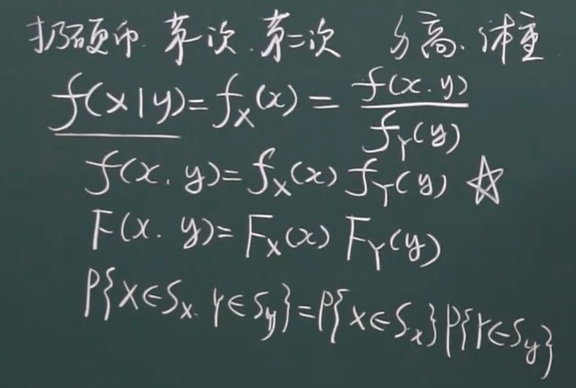 扔硬币. 第一次. 第二次 身高. 体重
f(x|y)=f_X(x)=\frac{f(x.y)}{f_Y(y)}
f(x.y)=f_X(x) f_Y(y) ☆
F(x.y)=F_X(x) F_Y(y)
P{X∈S_x. Y∈S_y}=P{X∈S_x}P{Y∈S_y}